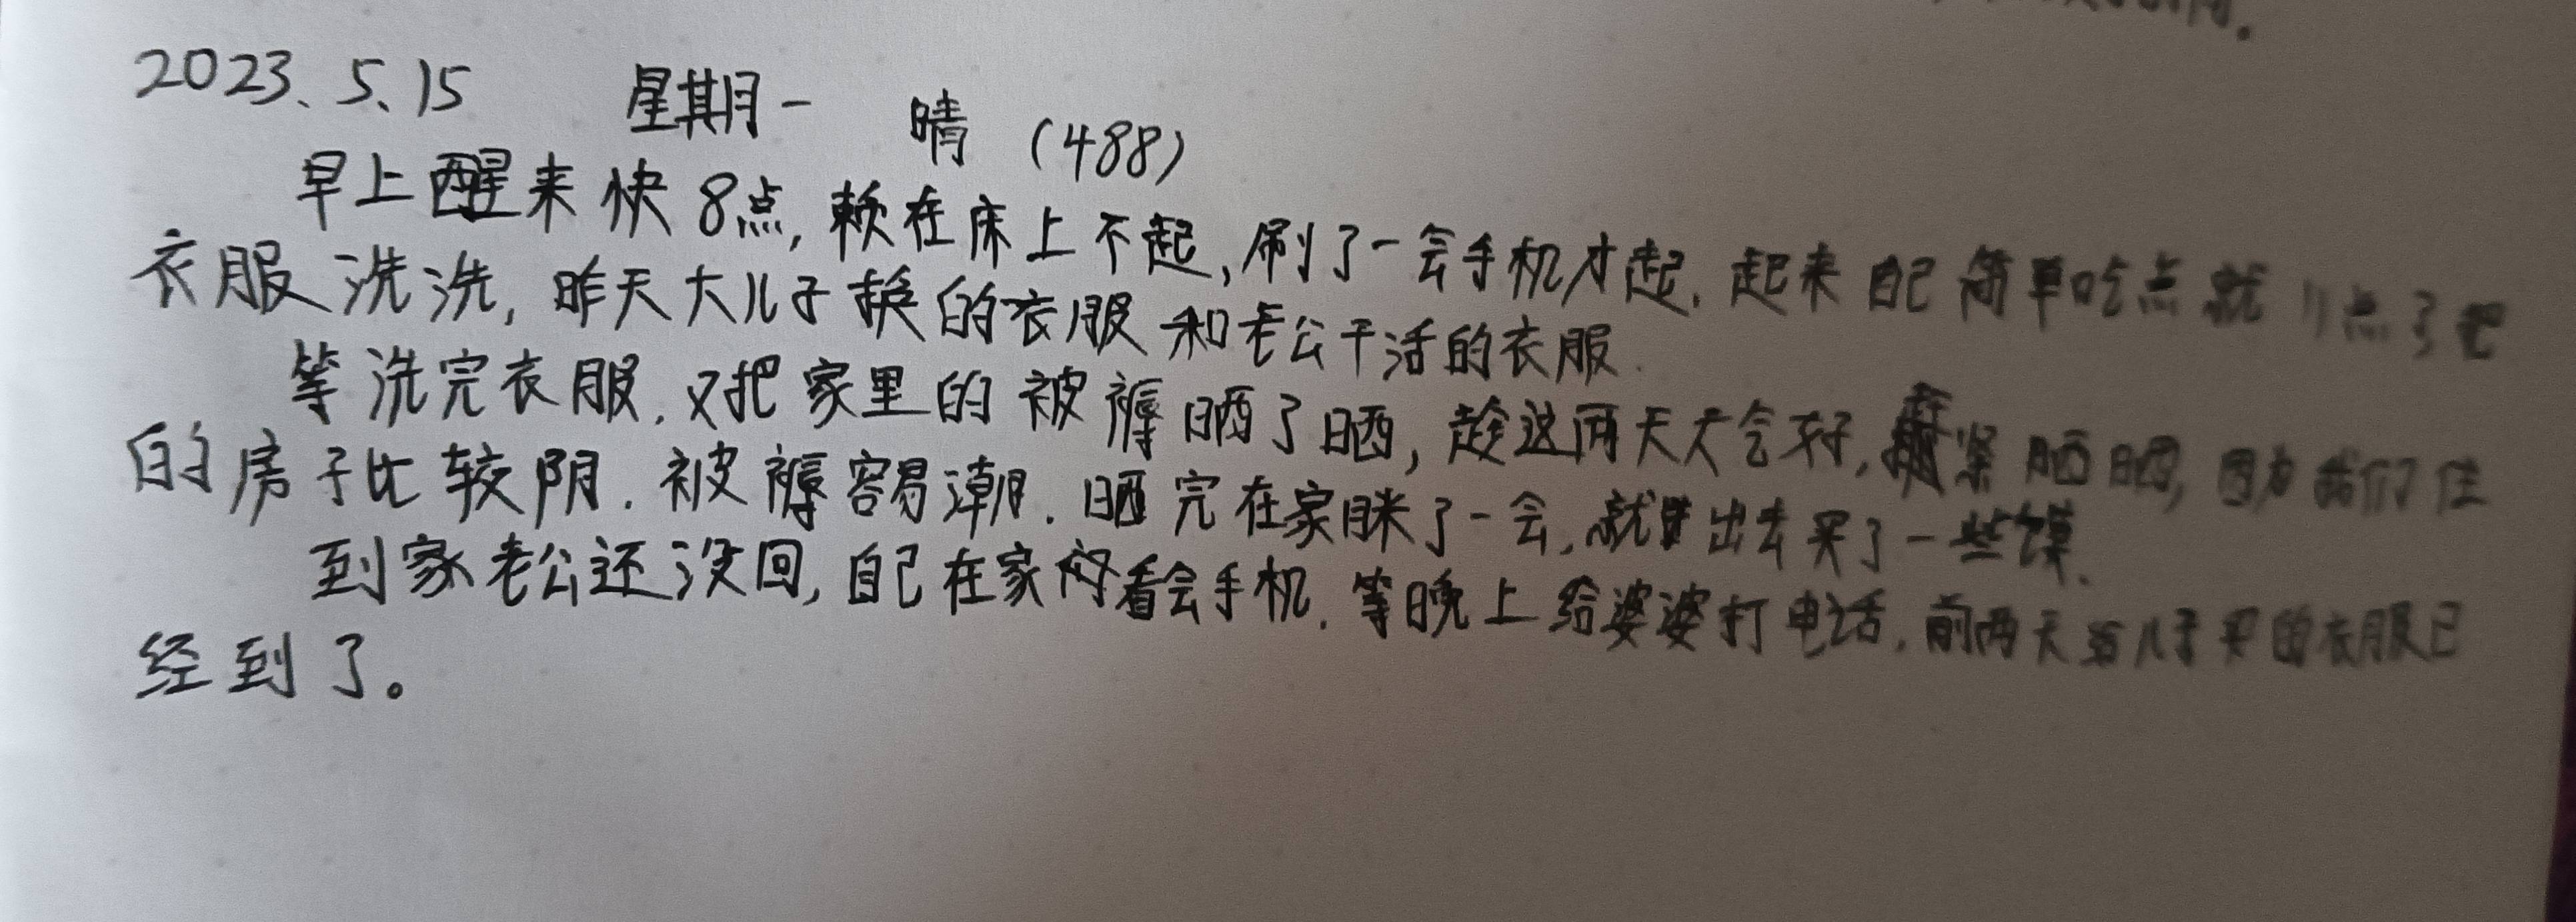 2023、5、15 星期一 晴 (488)
早上醒来快8点,赖在床上不起,刷了一会手机才起.起来自己简单吃点就11点了把
衣服洗洗,昨天大儿子换的衣服和老公干活的衣服.
等洗完衣服.又把家里的被褥晒了晒,趁这两天天会好,紧晒晒,因为我们住
的房子比较阴.被褥容易潮.晒完在家眯了一会,就出去买了一些馍.
到家老公还没回,自己在家闷看会手机.等晚上给婆婆打电话.前两天给儿子买的衣服已
经到了。